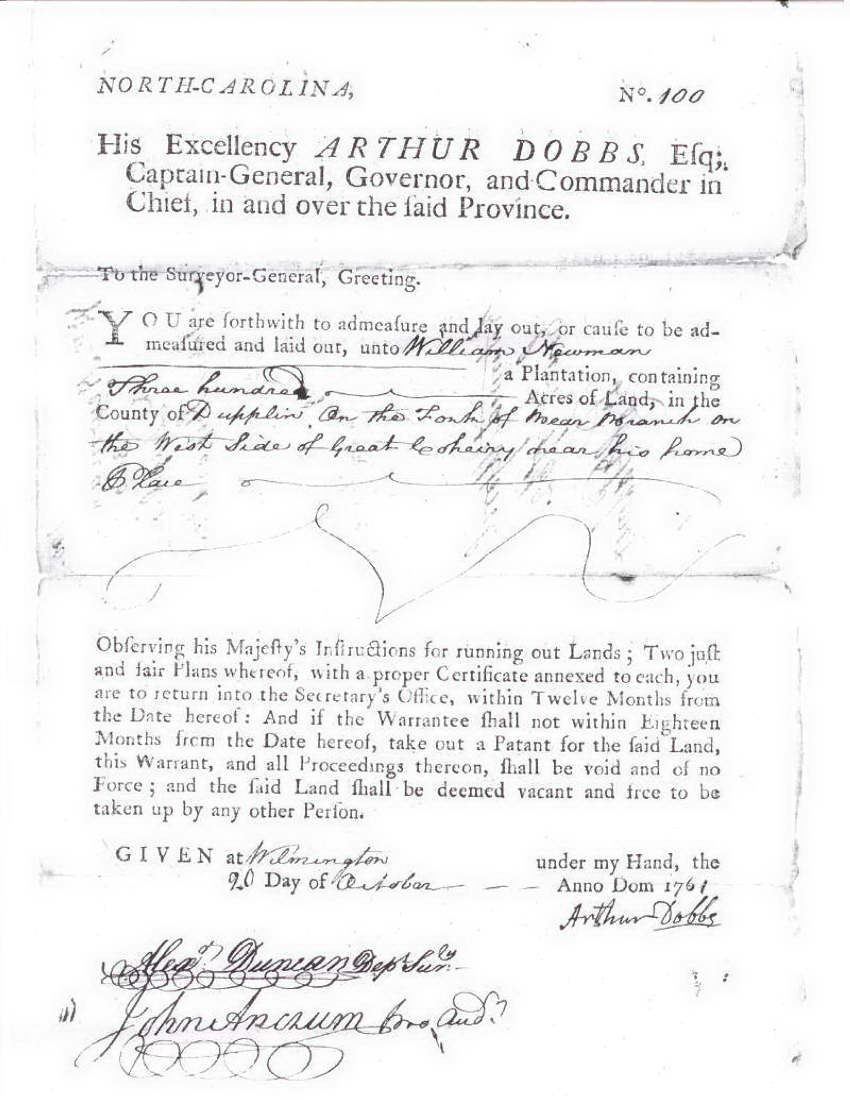 NORTH-CAROLINA,
Nº. 100
His Excellency ARTHUR DOBBS, Eſq;
Captain-General, Governor, and Commander in
Chief, in and over the ſaid Province.
To the Surveyor-General, Greeting.
YOU are forthwith to admeaſure and lay out, or cauſe to be ad-
meaſured and laid out, unto William Newman
a Plantation, containing
Three hundred Acres of Land, in the
County of Dupplin On the Forth of Bear Branch on
the West Side of Great Coheiry near his home
Place
Obſerving his Majeſty's Inſtructions for running out Lands; Two juſt
and fair Plans whereof, with a proper Certificate annexed to each, you
are to return into the Secretary's Office, within Twelve Months from
the Date hereof: And if the Warrantee ſhall not within Eighteen
Months from the Date hereof, take out a Patant for the ſaid Land,
this Warrant, and all Proceedings thereon, ſhall be void and of no
Force; and the ſaid Land ſhall be deemed vacant and free to be
taken up by any other Perſon.
GIVEN at Wilmington under my Hand, the
20 Day of October Anno Dom 1761
Arthur Dobbs
Alexr. Duncan Dep Sury
John Ancrum Pro Audr